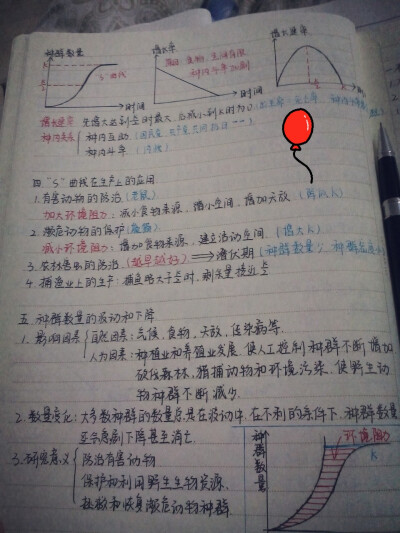 种群数量
增长率
增长速率
K
K/2
"S"曲线
时间
时间
K/2
K
增长速率: 先增大达到K/2时最大,后减小到K时为0
种内关系
种内互助
种内斗争
四."S"曲线在生产上的应用
1.有害动物的防治(老鼠)
加大环境阻力: 减小食物来源, 缩小空间, 增加天敌.(降低K)
2.濒危动物的保护
减小环境阻力: 增加食物来源, 建立活动空间.(增大K)
3.农林害虫的防治(越早越好)⟹潜伏期(种群数量少, 种群密度小)
4.捕渔业上的生产: 捕鱼略大于K/2时, 剩余量接近K/2
五.种群数量的波动和下降
1.影响因素
自然因素: 气候, 食物, 天敌, 传染病等.
人为因素: 种植业和养殖业发展, 使人工控制种群不断增加
砍伐森林, 猎捕动物和环境污染, 使野生动
物种群不断减少.
2.数量变化: 大多数种群的数量总是在波动中, 在不利的条件下, 种群数量
还会急剧下降甚至消亡.
3.研究意义
防治有害动物
保护和利用野生生物资源,
拯救和恢复濒危动物种群.
种群数量
环境阻力
K